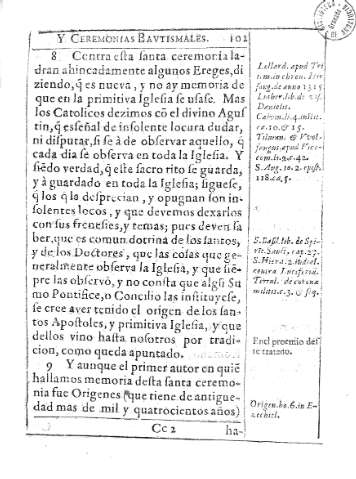 Y CEREMONIAS BAVTISMALES. 102
8 Contra esta santa ceremonia la-
dran ahincadamente algunos Ereges, di
ziendo, q̃ es nueva, y no ay memoria de
que en la primitiva Iglesia se usase. Mas
los Catolicos dezimos cõ el divino Agus
tin, q̃ es señal de insolente locura dudar,
ni disputar, si se à de observar aquello, q̃
cada dia se observa en toda la Iglesia. Y
siẽdo verdad, q̃ este sacro rito se guarda,
y à guardado en toda la Iglesia; siguese,
q̃ los q̃ la desprecian, y opugnan son in-
solentes locos, y que devemos dexarlos
con sus frenesies, y temas; pues deven sa
ber, que es comun dotrina de los santos,
y de los Doctores, que las cosas que ge-
neralmente observa la Iglesia, y que siẽ-
pre las observò, y no consta que algũ Su
mo Pontifice, o Concilio las instituyese,
se cree aver tenido el origen de los san-
tos Apostoles, y primitiva Iglesia, y que
dellos vino hasta nosotros por tradi-
cion, como queda apuntado.
9 Y aunque el primer autor en quiẽ
hallamos memoria desta santa ceremo-
nia fue Origenes (que tiene de antigue-
dad mas de mil y quatrocientos años)
Cc 2 ha-
Lollard. apud Tri
tem. in chron. Hir
saug. de anno 1315.
Danielis.
S. Aug. to. 2. epist.
118. ca. 5.
S. Basil. lib. de Spi-
ritu Sancti, cap. 27.
En el proemio des
te tratado.
Origen. ho. 6. in E-
zechiel.